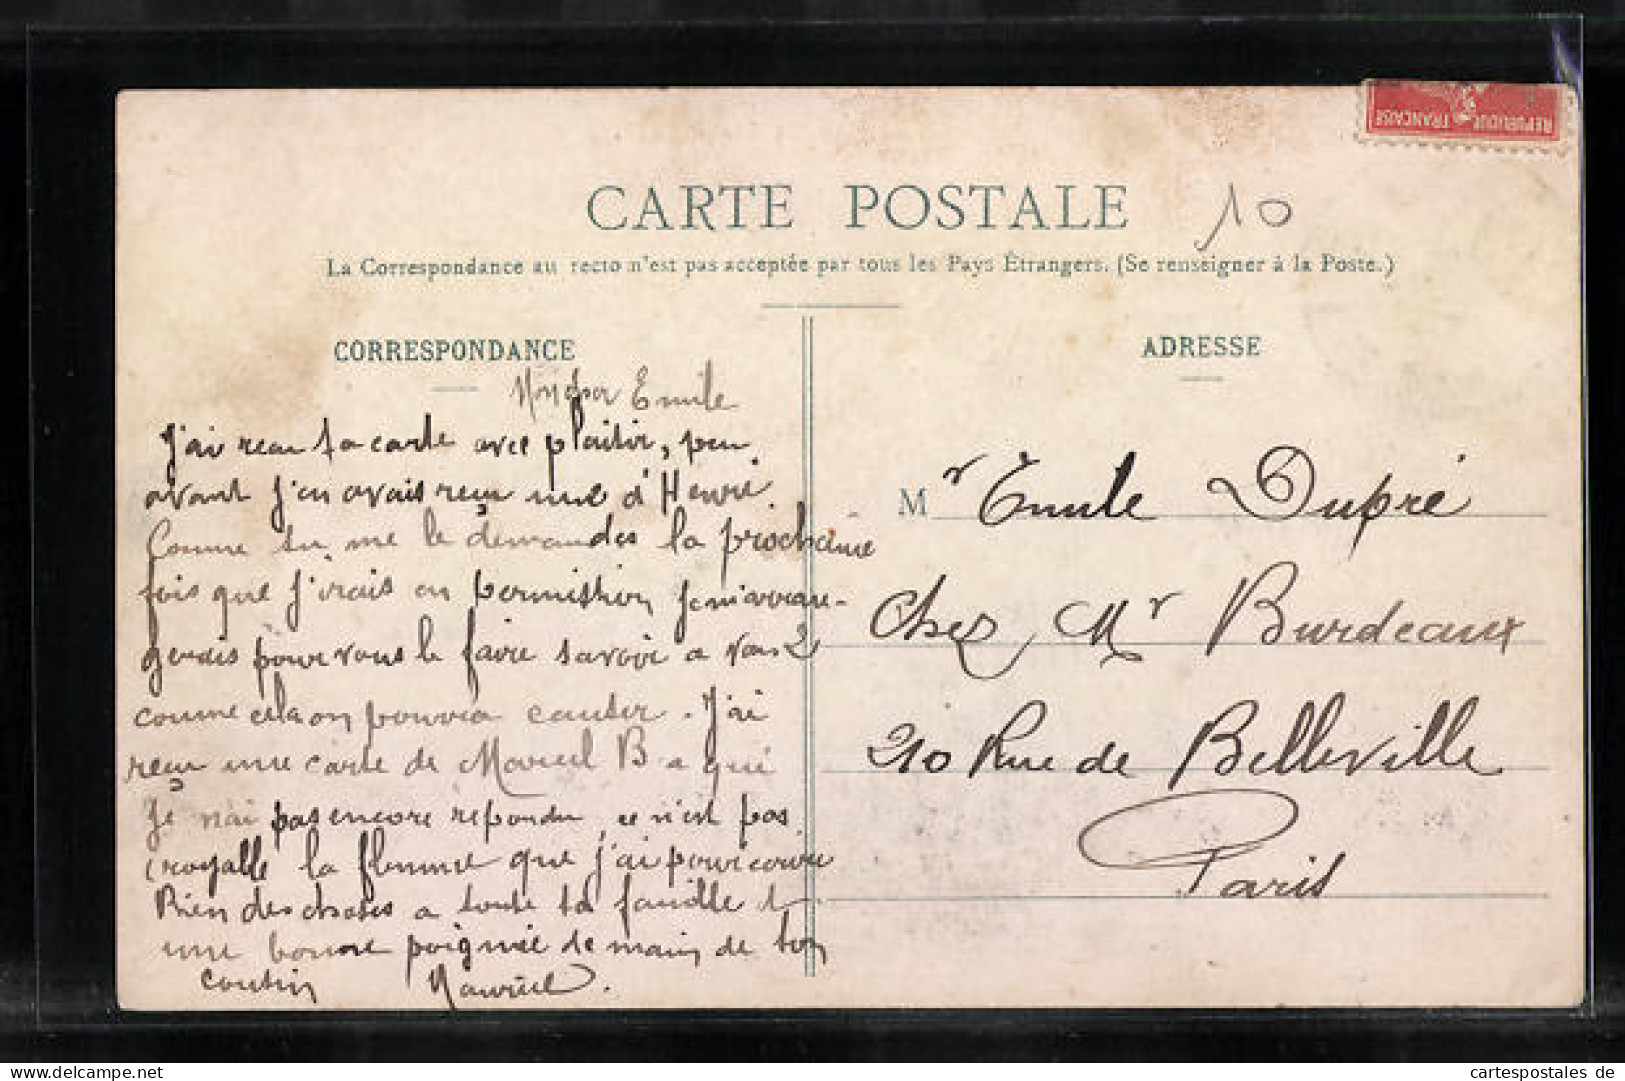 REPUBLIQUE FRANCAISE
CARTE POSTALE
10
La Correspondance au recto n'est pas acceptée par tous les Pays Étrangers. (Se renseigner à la Poste.)
CORRESPONDANCE
Mon cher Emile
J'ai reçu ta carte avec plaisir, peu
avant j'en avais reçu une d'Henri
Comme tu me le demandes la prochaine
fois que j'irais en permission je m'arran-
gerais pour vous le faire savoir a vous 2
comme cela on pourra causer. J'ai
reçu une carte de Marcel B a qui
Je n'ai pas encore repondu, ce n'est pas
croyable la flemme que j'ai pour écrire
Bien des choses a toute ta famille et
une bonne poignée de main de ton
cousin Maurice.
ADRESSE
Mr Emile Dupré
Chez Mr Burdeaux
210 Rue de Belleville
Paris
cartespostales de